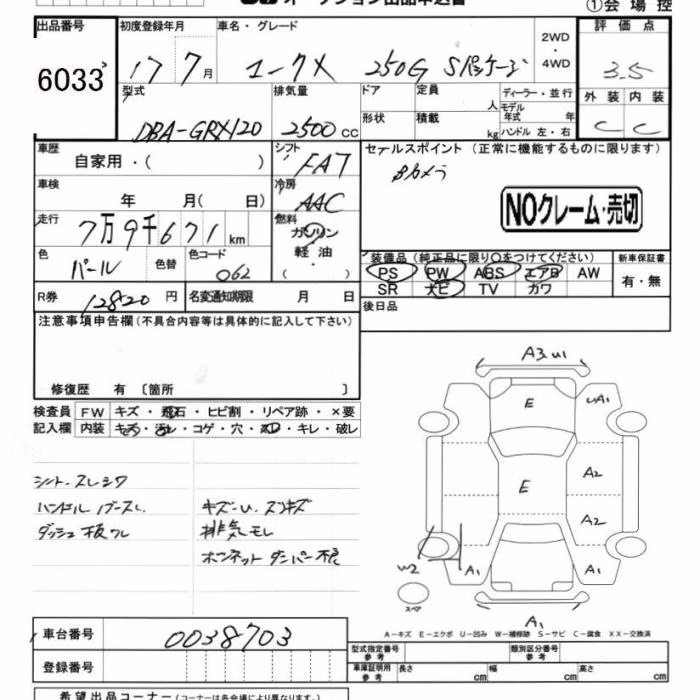 オークション出品申込書
①会場控
出品番号
6033
初度登録年月
17 7月
車名・グレード
マークX 250G Sパッケージ
2WD
・
4WD
評価点
3.5
外装 内装
C C
型式
DBA-GRX120
排気量
2500cc
ドア
形状
定員 人
積載 kg
ディーラー・並行
モデル
年式 年
ハンドル 左・右
車歴
自家用・( )
シフト
FAT
セールスポイント (正常に機能するものに限ります)
Bカメラ
NOクレーム・売切
車検
年 月( 日)
冷房
AAC
走行
7万9千671km
燃料
ガソリン
軽油
( ・ )
色
パール
色替
色コード
062
装備品 (純正品に限り○をつけてください)
PS PW ABS エアB AW
SR ナビ TV カワ
新車保証書
有・無
R券
12820円
名変通知期限 月 日
後日品
注意事項申告欄 (不具合内容等は具体的に記入して下さい)
修復歴 有 〔箇所 〕
検査員
記入欄
FW キズ・飛石・ヒビ割・リペア跡・×要
内装 キズ・汚れ・コゲ・穴・スレ・キレ・破レ
シートスレシワ
ハンドルノブスレ
ダッシュ板ワレ
キズ・U、スリキズ
排気モレ
ボンネットダンパー不良
A3 U1
E
UA1
A2
E
A2
W2
A1
A1
スペア
A1
A-キズ E-エクボ U-凹み W-補修跡 S-サビ C-腐食 XX-交換済
車台番号
0038703
登録番号
型式指定番号
参考
類別区分番号
参考
車庫証明用
参考
長さ cm
幅 cm
高さ cm
希望出品コーナー (コーナーは各会場により異なります。)